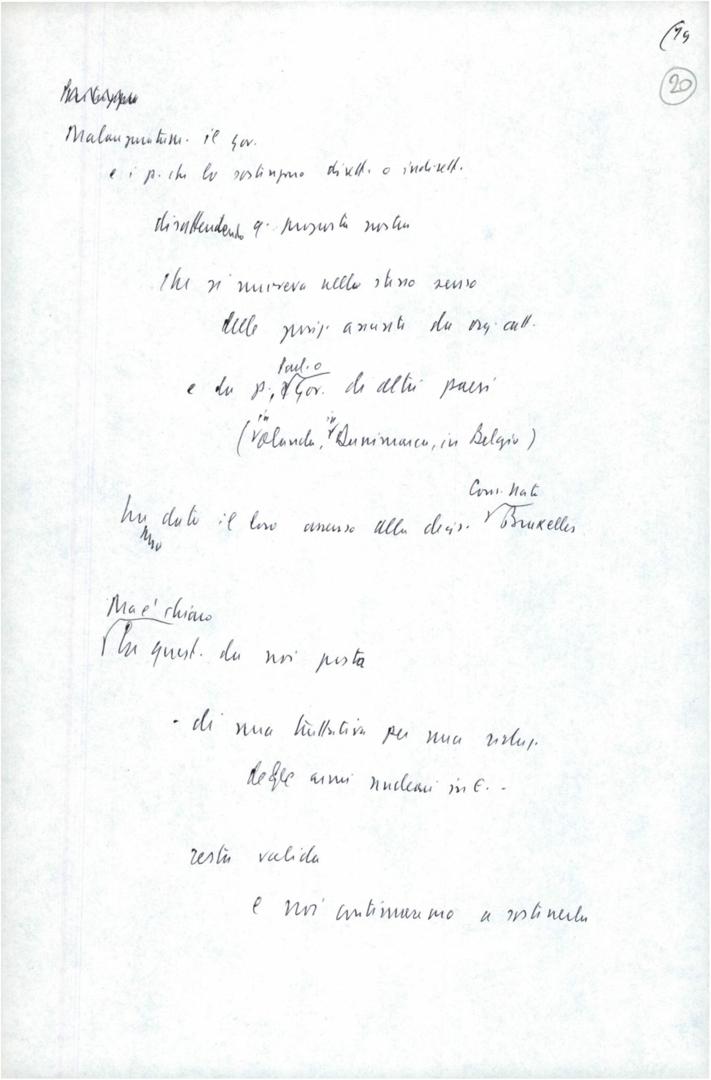 (19
20
Malauguratam. il gov.
e i p. che lo sostengono dirett. o indirett.
disattendendo q. proposta nostra
che si muoveva nello stesso senso
delle posiz. assunte da org. catt.
Parl. o
e da p., Gov. di altri paesi
(in Olanda, in Danimarca, in Belgio)
Cons. Nato
hanno dato il loro assenso alla decis. Bruxelles
Ma e' chiaro
la quest. da noi posta
- di una trattativa per una riduz.
degli armi nucleari in E. -
resta valida
e noi continueremo a sostenerla